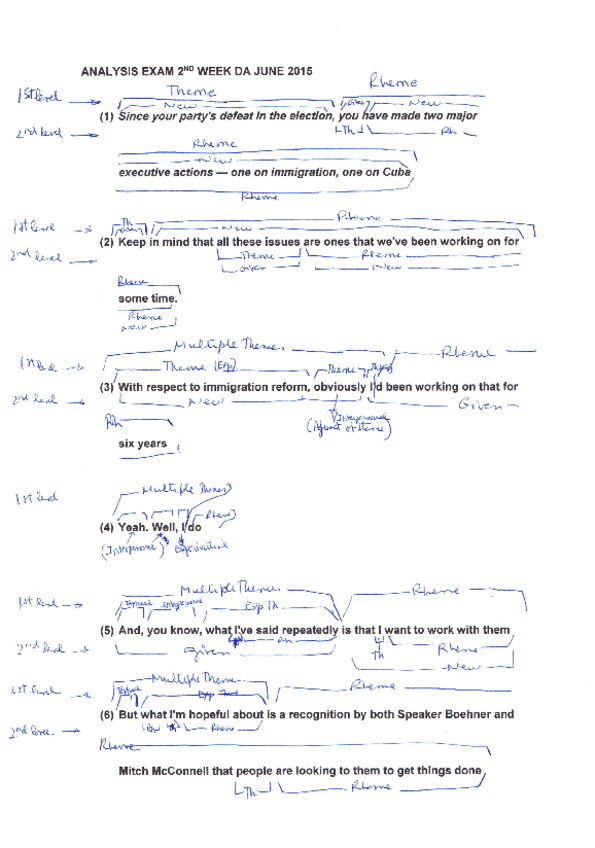 ANALYSIS EXAM 2ND WEEK DA JUNE 2015
Theme Rheme
1st level New Given New
(1) Since your party's defeat in the election, you have made two major
2nd level Th Rh
Rheme
New
executive actions — one on immigration, one on Cuba
Rheme
Th Rheme
1st level Given New
(2) Keep in mind that all these issues are ones that we've been working on for
2nd level Theme Rheme
Given New
Rheme
some time.
Rheme
New
Multiple Themes Rheme
Theme (Exp) Theme
(3) With respect to immigration reform, obviously I'd been working on that for
2nd level New Given
Rh Interpersonal
six years
1st level Multiple Themes
(4) Yeah. Well, I do
(Interpersonal) Experiential
Multiple Themes Rheme
1st level Textual Interpersonal Exp Th
(5) And, you know, what I've said repeatedly is that I want to work with them
2nd level Given Rh Th Rheme
New
Multiple Themes
1st level Textual Exp Theme Rheme
(6) But what I'm hopeful about is a recognition by both Speaker Boehner and
2nd level Th Rheme
Rheme
Mitch McConnell that people are looking to them to get things done
Th Rheme